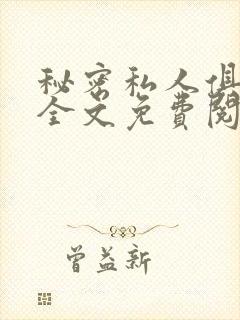 秘密私人俱
全文免費閱
曾益新